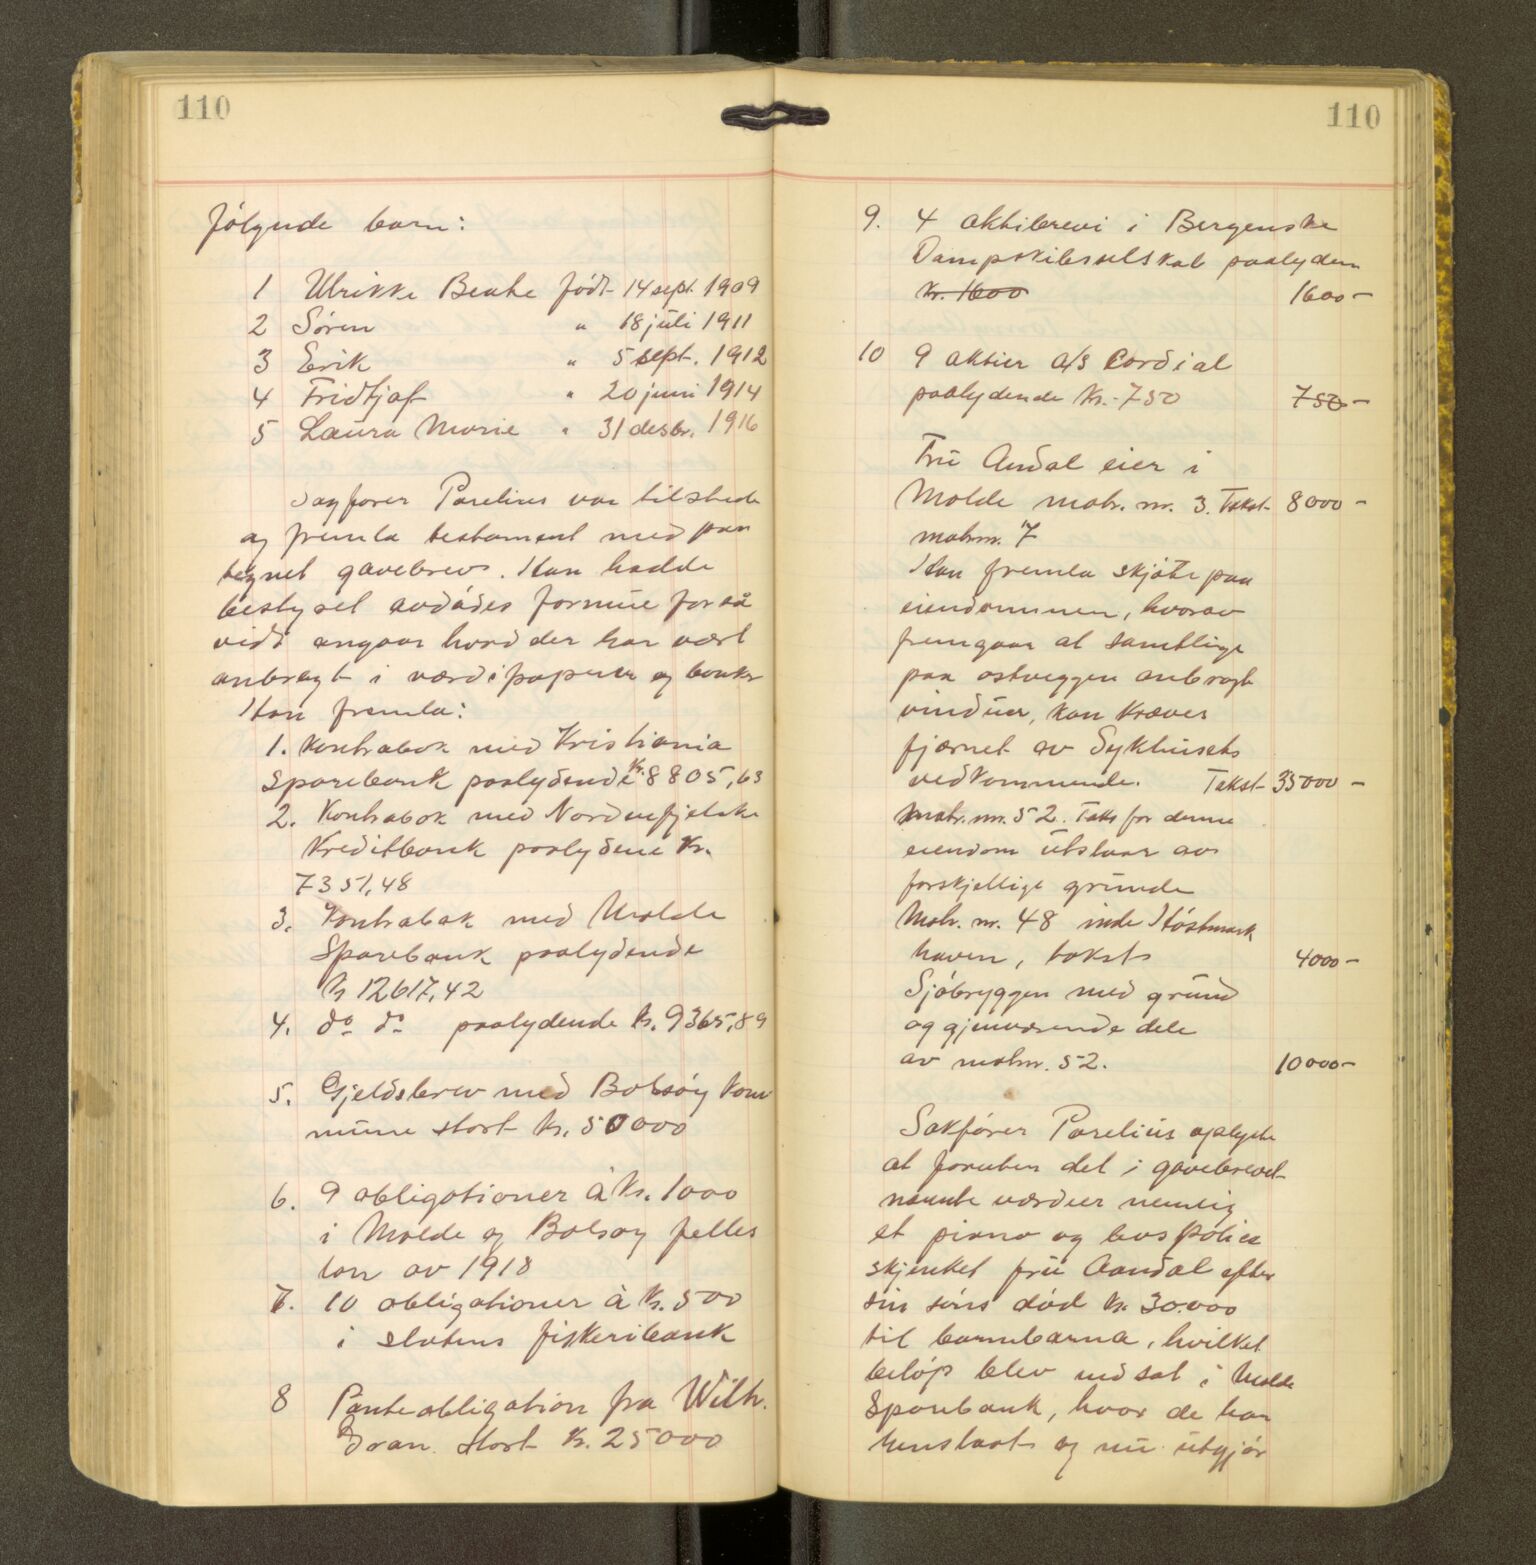 110
følgende barn:
1 Ulrikke Beate født 14 sept. 1909
2 Søren " 18 juli 1911
3 Erik " 5 sept. 1912
4 Fridtjof " 20 juni 1914
5 Laura Marie " 31 desbr. 1916
Sagfører Parelius var tilstede
og fremla testament med paa
tegnet gavebrev. Han hadde
bestyret avdødes formue forså
vidt angaar hvad der har vært
anbragt i værdipapirer og banker
Han fremla:
1. Kontrabok med Kristiania
Sparebank paalydende kr. 8805,63
2. Kontrabok med Nordenfjelske
Kreditbank paalydene kr.
7351,48
3. Kontrabok med Molde
Sparebank paalydende
kr 12617,42
4. do do paalydende kr. 9365,89
5. Gjeldsbrev med Bolsøy kom
mune stort kr. 50000
6. 9 obligationer à kr. 1000
i Molde og Bolsøy felles
lån av 1918
7. 10 obligationer à kr. 500
i statens fiskeribank
8 Panteobligation fra Wilh.
Dran stort kr. 25000
110
9. 4 aktibrevi i Bergenske
Dampskibsselskab paalyden
kr. 1600 1600-
10 9 aktier a/s Cordial
paalydende kr. 750 750-
Fru Andal eier i
Molde matr. nr. 3. Takst 8000-
matrnr. 17
Han fremla skjøte paa
eiendommen, hvorav
fremgaar at samtlige
paa østveggen anbragte
vinduer, kan kræves
fjærnet av Sykhusets
vedkommende. Takst 35000-
matr. nr. 52. Takst for denne
eiendom utstaar av
forskjellige grunde
Matr. nr. 48 inde Høstmark
haven, takst 4000-
Sjøbryggen med grund
og gjenværende dele
av matrnr. 52. 10000-
Sakfører Parelius oplyste
at foruten det i gavebrevet
nævnte værdier nemlig
et piano og livspolice
skjenket fru Aandal efter
sin søns død kr. 30.000
til barnebarna, hvilket
beløp blev indsat i Molde
Sparebank, hvor de har
henstaat og nu utgjør